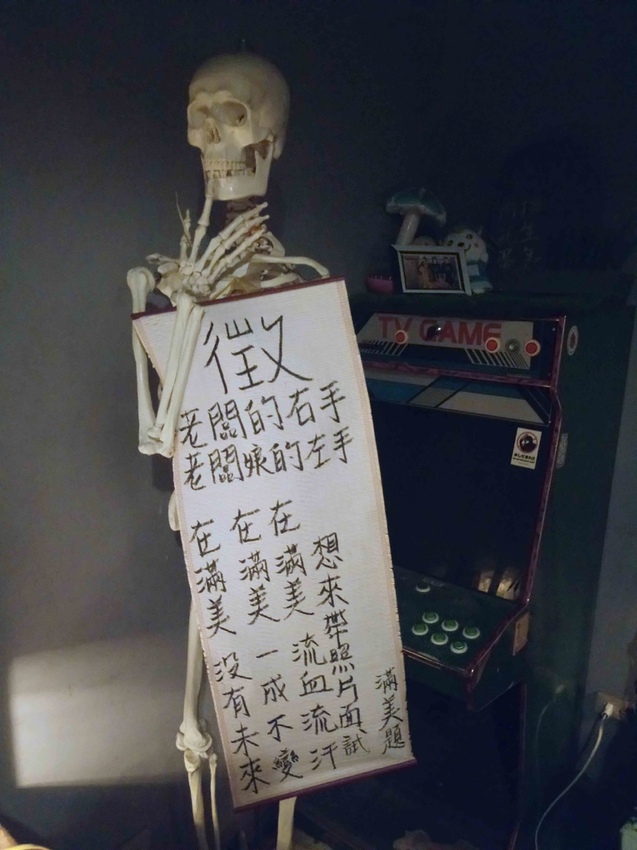 徵
老闆的右手
老闆娘的左手
在滿美沒有未來
在滿美一成不變
在滿美流血流汗
想來帶照片面試
滿美題
TV GAME